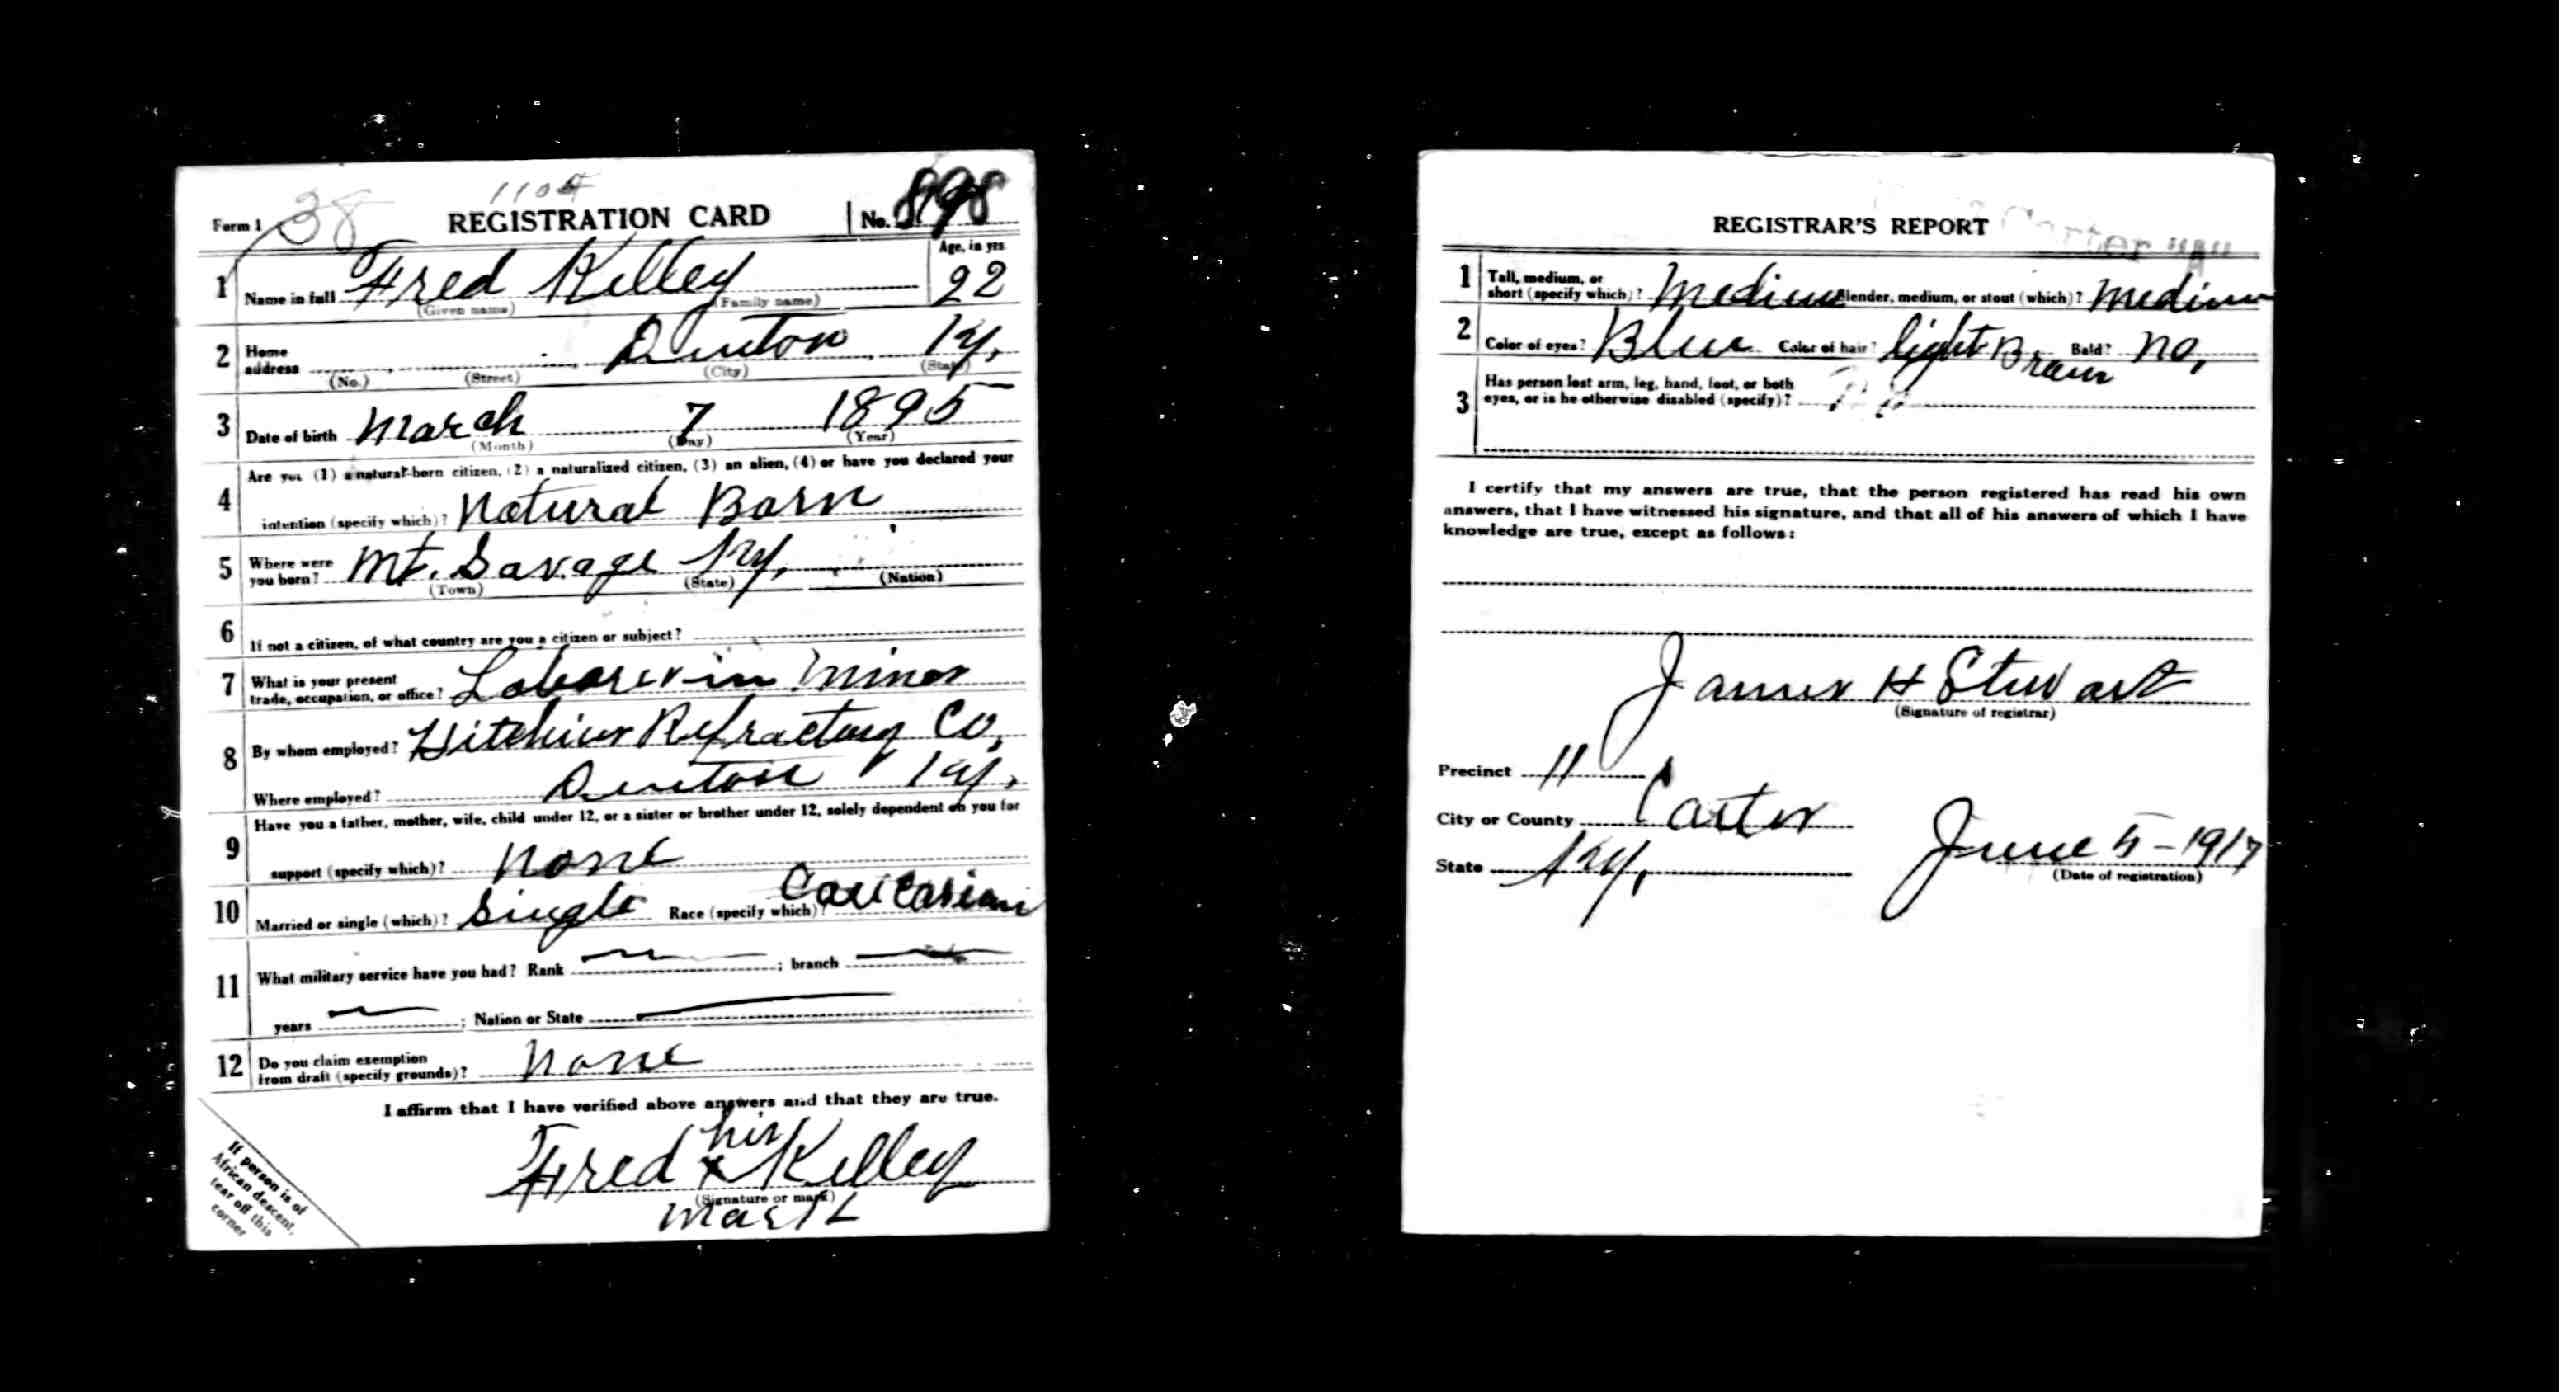 Form 1 38 1104 REGISTRATION CARD No. 898
1 Name in full Fred Kelley Age, in yrs 22
(Given name) (Family name)
2 Home address Denton, Ky,
(No.) (Street) (City) (State)
3 Date of birth March 7 1895
(Month) (Day) (Year)
Are you (1) a natural-born citizen, (2) a naturalized citizen, (3) an alien, (4) or have you declared your
4 intention (specify which)? Natural Born
5 Where were you born? Mt. Savage Ky,
(Town) (State) (Nation)
6 If not a citizen, of what country are you a citizen or subject?
7 What is your present trade, occupation, or office? Laborer in
8 By whom employed? Refractory Co,
Where employed? Denton Ky,
Have you a father, mother, wife, child under 12, or a sister or brother under 12, solely dependent on you for
9 support (specify which)? None
10 Married or single (which)? Single Race (specify which)? Caucasian
11 What military service have you had? Rank ; branch
years ; Nation or State
12 Do you claim exemption from draft (specify grounds)? None
I affirm that I have verified above answers and that they are true.
his
Fred x Kelley
(Signature or mark)
mark
If person is of
African descent,
tear off this
corner
REGISTRAR'S REPORT
1 Tall, medium, or short (specify which)? Medium Slender, medium, or stout (which)? Medium
2 Color of eyes? Blue Color of hair? light Brown Bald? No,
3 Has person lost arm, leg, hand, foot, or both
eyes, or is he otherwise disabled (specify)? No
I certify that my answers are true, that the person registered has read his own
answers, that I have witnessed his signature, and that all of his answers of which I have
knowledge are true, except as follows:
James H Stewart
(Signature of registrar)
Precinct 11
City or County Carter
State Ky, June 5-1917
(Date of registration)